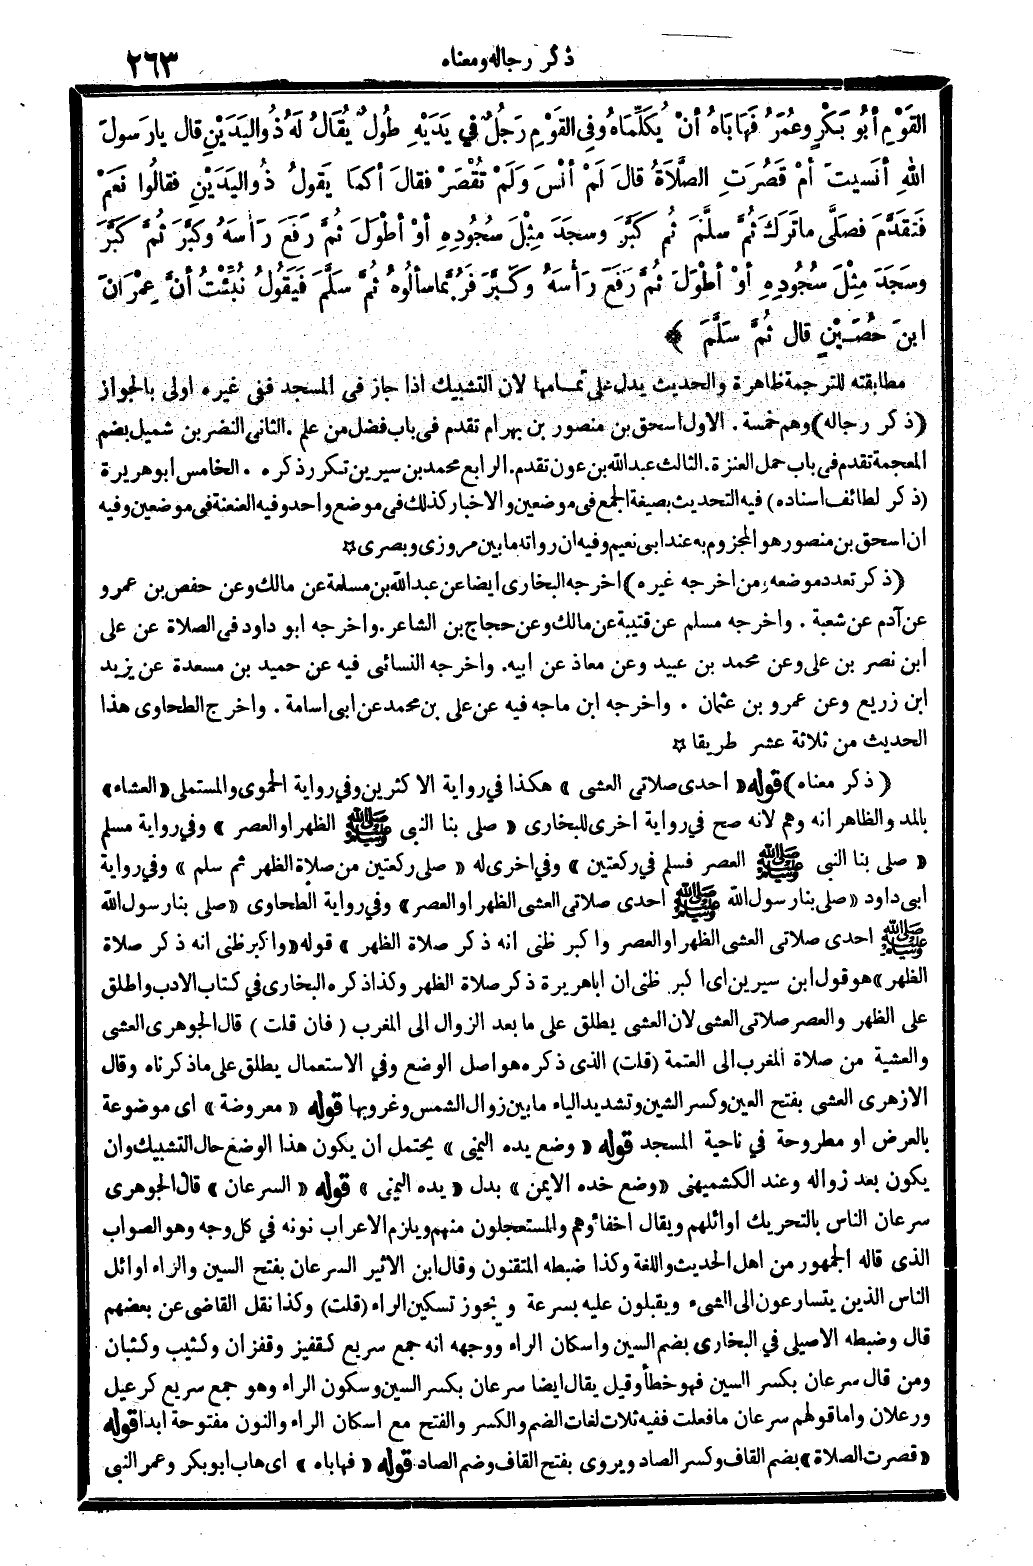 ذكر رجاله ومعناه
٢٦٣
القَوْمِ أبُو بَكْرٍ وعُمَرُ فَهَابَاهُ أنْ يُكَلِّمَاهُ وفِي القَوْمِ رَجُلٌ فِي يَدَيْهِ طُولٌ يُقَالُ لَهُ ذُو اليَدَيْنِ قال يارَسولَ
اللهِ أنَسِيتَ أمْ قَصُرَتِ الصَّلَاةُ قالَ لَمْ أنْسَ وَلَمْ تُقْصَرْ فقالَ أكَما يَقولُ ذُو اليَدَيْنِ فقالُوا نَعَمْ
فَتَقَدَّمَ فصلَّى ماتَرَكَ ثُمَّ سلَّمَ ثُم كَبَّرَ وسجَدَ مِثْلَ سُجُودِهِ أوْ أطْوَلَ ثُمَّ رَفَعَ رَأسَهُ وكَبَّرَ ثُمَّ كَبَّرَ
وسَجَدَ مِثْلَ سُجُودِهِ أوْ أطْوَلَ ثُمَّ رَفَعَ رَأْسَهُ وَكَبَّرَ فَرُبَّما سألُوهُ ثُمَّ سَلَّمَ فَيَقُولُ نُبِّئْتُ أنَّ عِمْرَانَ
ابنَ حُصَيْنٍ قال ثُمَّ سَلَّمَ ﴾
مطابقته للترجمة ظاهرة والحديث يدل على تمامها لان التشبيك اذا جاز في المسجد ففي غيره اولى بالجواز
(ذكر رجاله) وهم خمسة. الاول اسحق بن منصور بن بهرام تقدم في باب فضل من علم. الثاني النضر بن شميل بضم
المعجمة تقدم في باب حمل العنزة. الثالث عبد الله بن عون تقدم. الرابع محمد بن سيرين تكرر ذكره. الخامس ابو هريرة
(ذكر لطائف اسناده) فيه التحديث بصيغة الجمع في موضعين والاخبار كذلك في موضع واحد وفيه العنعنة في موضعين وفيه
ان اسحق بن منصور هو المجزوم به عند ابي نعيم وفيه ان رواته ما بين مروزي وبصري ☆
(ذكر تعدد موضعه ومن اخرجه غيره) اخرجه البخاري ايضا عن عبد الله بن مسلمة عن مالك وعن حفص بن عمرو
عن آدم عن شعبة. واخرجه مسلم عن قتيبة عن مالك وعن حجاج بن الشاعر. واخرجه ابو داود في الصلاة عن علي
ابن نصر بن علي وعن محمد بن عبيد وعن معاذ عن ابيه. واخرجه النسائي فيه عن حميد بن مسعدة عن يزيد
ابن زريع وعن عمرو بن عثمان. واخرجه ابن ماجه فيه عن علي بن محمد عن ابي اسامة. واخرج الطحاوي هذا
الحديث من ثلاثة عشر طريقا ☆
(ذكر معناه) قوله «احدى صلاتي العشي» هكذا في رواية الاكثرين وفي رواية الحموي والمستملي «العشاء»
بالمد والظاهر انه وهم لانه صح في رواية اخرى للبخاري «صلى بنا النبي ﷺ الظهر او العصر» وفي رواية مسلم
«صلى بنا النبي ﷺ العصر فسلم في ركعتين» وفي اخرى له «صلى ركعتين من صلاة الظهر ثم سلم» وفي رواية
ابي داود «صلى بنا رسول الله ﷺ احدى صلاتي العشي الظهر او العصر» وفي رواية الطحاوي «صلى بنا رسول الله
ﷺ احدى صلاتي العشي الظهر او العصر واكبر ظني انه ذكر صلاة الظهر» قوله «واكبر ظني انه ذكر صلاة
الظهر» هو قول ابن سيرين اي اكبر ظني ان ابا هريرة ذكر صلاة الظهر وكذا ذكره البخاري في كتاب الادب واطلق
على الظهر والعصر صلاتي العشي لان العشي يطلق على ما بعد الزوال الى المغرب (فان قلت) قال الجوهري العشي
والعشية من صلاة المغرب الى العتمة (قلت) الذي ذكره هو اصل الوضع وفي الاستعمال يطلق على ما ذكرناه وقال
الازهري العشي بفتح العين وكسر الشين وتشديد الياء ما بين زوال الشمس وغروبها قوله «معروضة» اي موضوعة
بالعرض او مطروحة في ناحية المسجد قوله «وضع يده اليمنى» يحتمل ان يكون هذا الوضع حال التشبيك وان
يكون بعد زواله وعند الكشميهني «وضع خده الايمن» بدل «يده اليمنى» قوله «السرعان» قال الجوهري
سرعان الناس بالتحريك اوائلهم ويقال اخفاؤهم والمستعجلون منهم ويلزم الاعراب نونه في كل وجه وهو الصواب
الذي قاله الجمهور من اهل الحديث واللغة وكذا ضبطه المتقنون وقال ابن الاثير السرعان بفتح السين والراء اوائل
الناس الذين يتسارعون الى الشيء ويقبلون عليه بسرعة ويجوز تسكين الراء (قلت) وكذا نقل القاضي عن بعضهم
قال وضبطه الاصيلي في البخاري بضم السين واسكان الراء ووجهه انه جمع سريع كقفيز وقفزان وكثيب وكثبان
ومن قال سرعان بكسر السين فهو خطأ وقيل يقال ايضا سرعان بكسر السين وسكون الراء وهو جمع سريع كرعيل
ورعلان واما قولهم سرعان ما فعلت ففيه ثلاث لغات الضم والكسر والفتح مع اسكان الراء والنون مفتوحة ابدا قوله
«قصرت الصلاة» بضم القاف وكسر الصاد ويروى بفتح القاف وضم الصاد قوله «فهاباه» اي هاب ابو بكر وعمر النبي